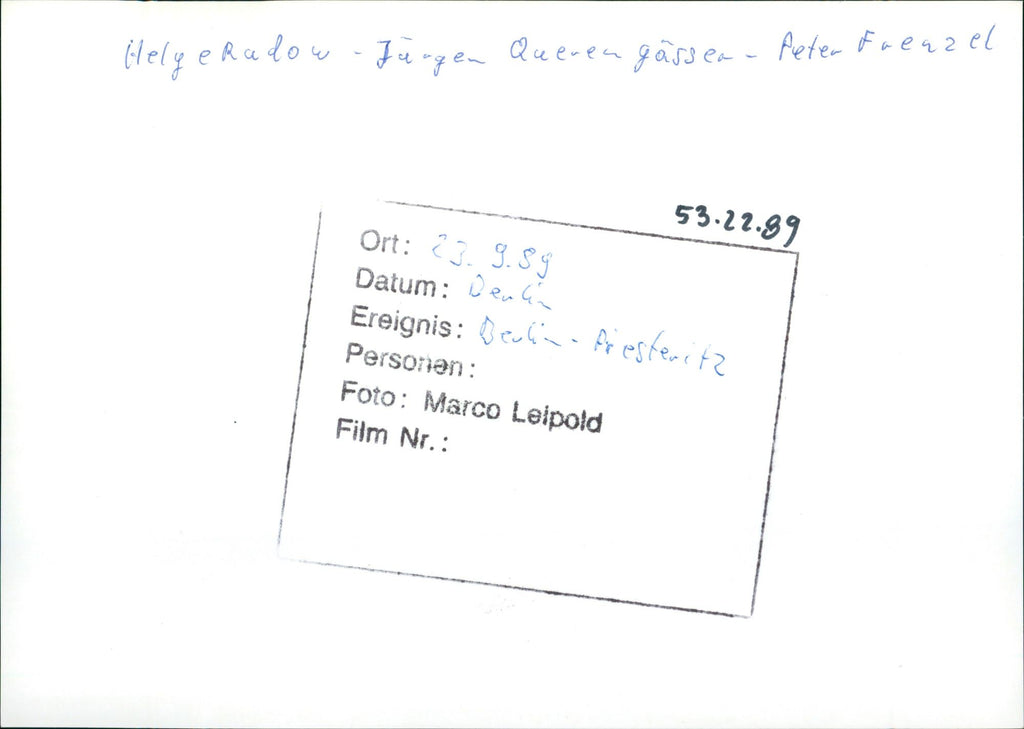 Helge Radow - Jürgen Querengässer - Peter Frenzel
53.22.89
Ort: 23.9.89
Datum: Berlin
Ereignis: Berlin - Priesteritz
Personen:
Foto: Marco Leipold
Film Nr.: